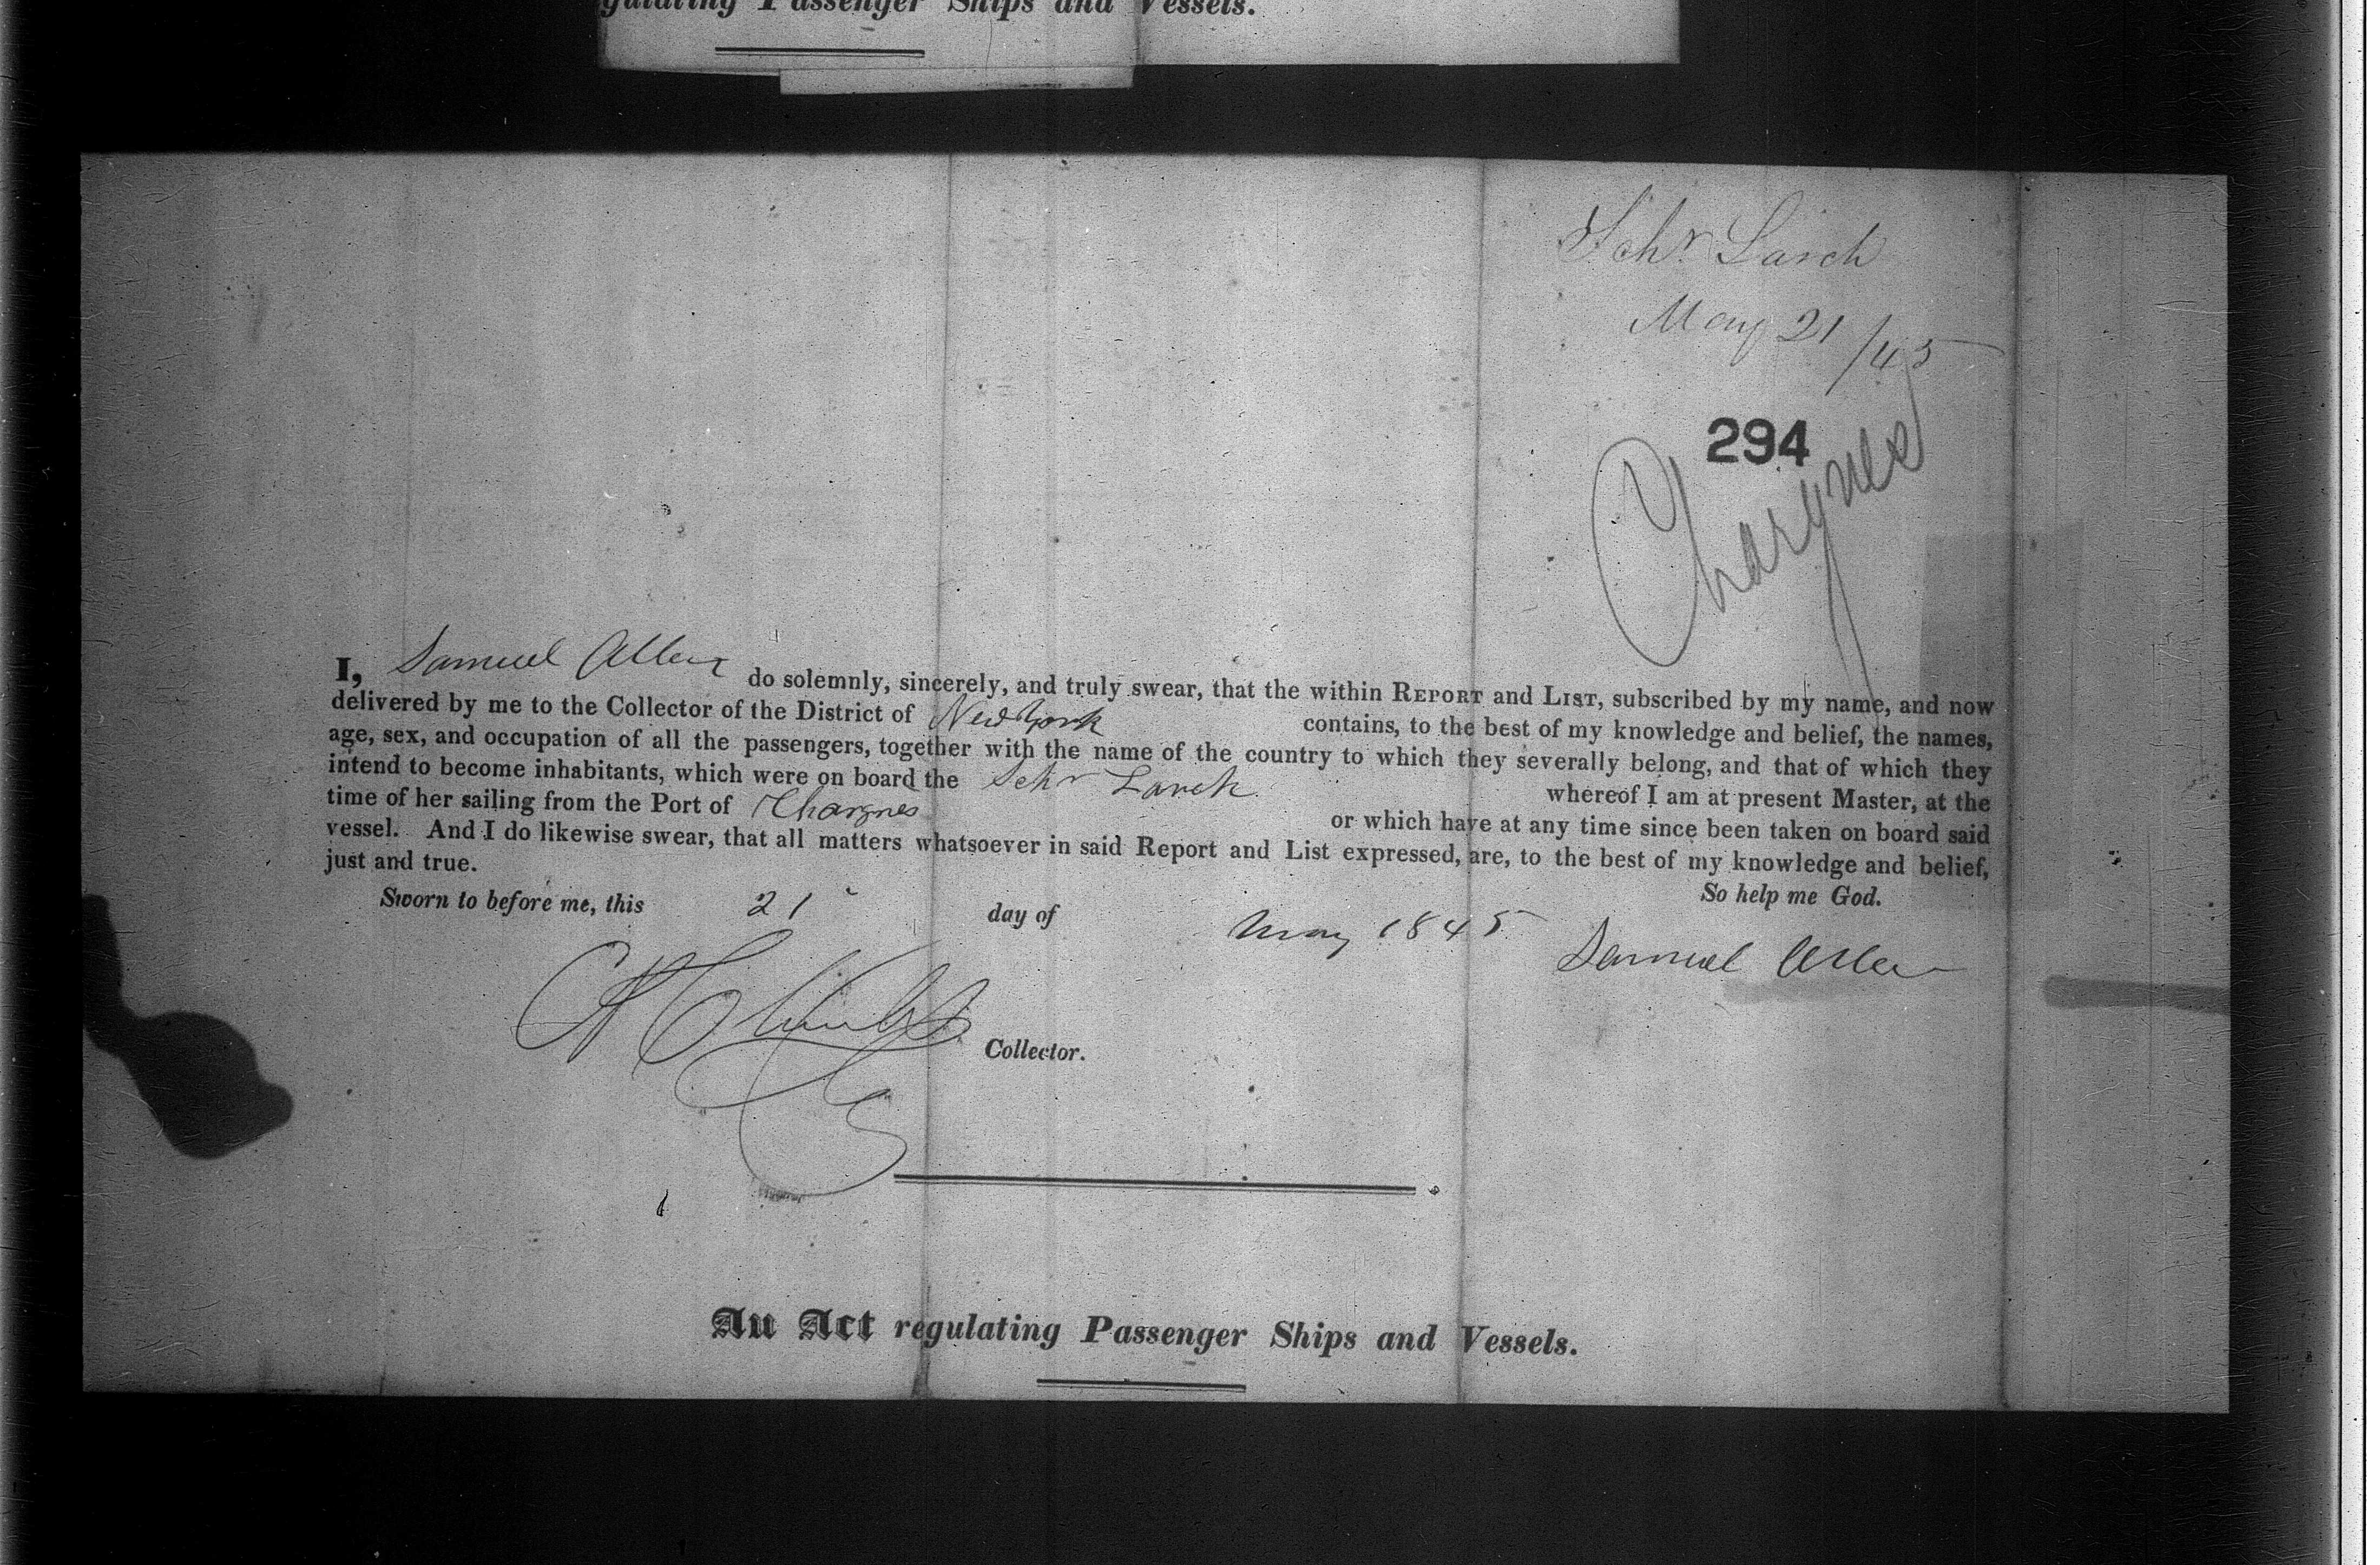 gulating Passenger Ships and Vessels.
Schr Larch
May 21/45
294
Chargres
I, Samuel Allen do solemnly, sincerely, and truly swear, that the within REPORT and LIST, subscribed by my name, and now
delivered by me to the Collector of the District of New York contains, to the best of my knowledge and belief, the names,
age, sex, and occupation of all the passengers, together with the name of the country to which they severally belong, and that of which they
intend to become inhabitants, which were on board the Schr Larch whereof I am at present Master, at the
time of her sailing from the Port of Chargres or which have at any time since been taken on board said
vessel. And I do likewise swear, that all matters whatsoever in said Report and List expressed, are, to the best of my knowledge and belief,
just and true.
So help me God.
Sworn to before me, this 21 day of May 1845
Samuel Allen
Collector.
An Act regulating Passenger Ships and Vessels.